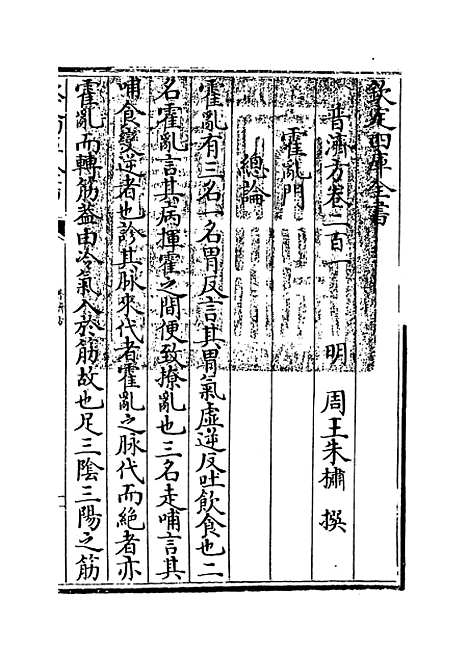 欽定四庫全書
普濟方卷二百一
明 周王朱橚 撰
霍亂門
總論
霍亂有三名一名胃反言其胃氣虛逆反吐飲食也二
名霍亂言其病揮霍之間便致撩亂也三名走哺言其
哺食變逆者也診其脉來代者霍亂之脉代而絶者亦
霍亂而轉筋葢由冷氣入於筋故也足三陰三陽之筋